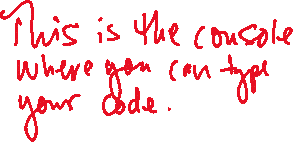 This is the console
where you can type
your code.